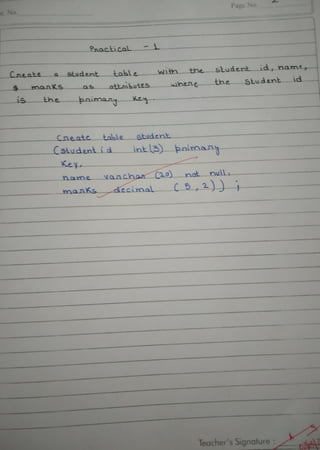 Page No.
Practical - 1
Create a student table with the student id, name,
& marks as attributes where the student id
is the primary key.
Create table student
(student id int(3) primary
Key,
name varchar (20) not null,
marks decimal (5,2));
Teacher's Signature :